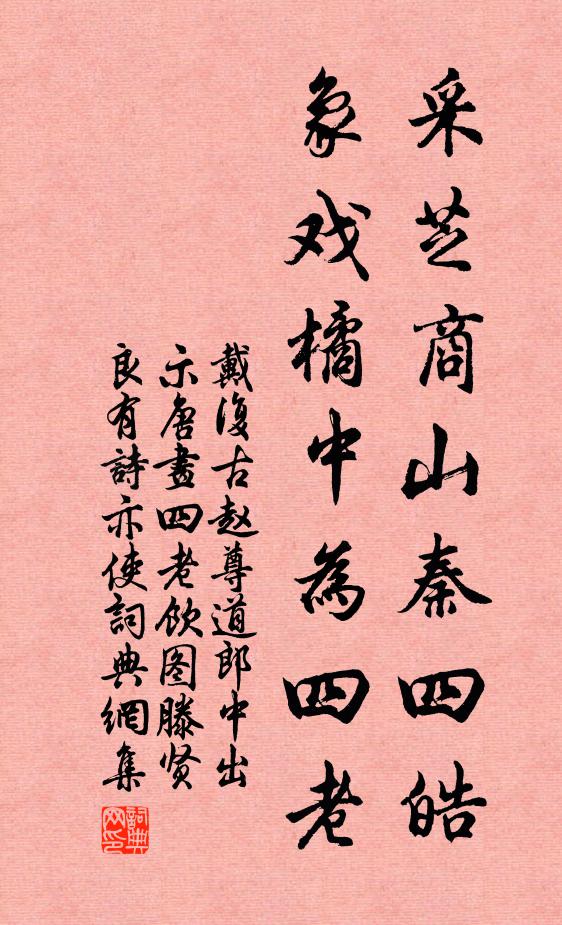 采芝商山秦四皓
象戏橘中為四老
戴復古赵尊道郎中出
示唐畫四老饮图滕贤
良有詩亦使詞典網集
詞典网印